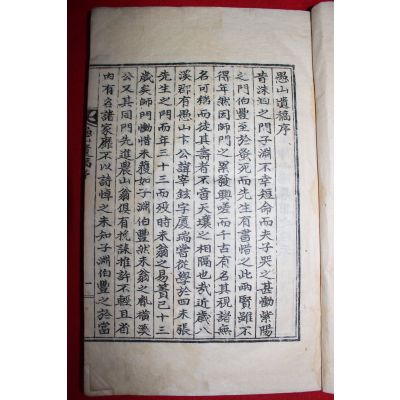 愚山遺稿序
昔洙泗之門子淵不幸短命而夫子哭之甚慟紫陽
之門伯豐至於蚤死而先生有書惜之此兩賢雖不
得年然因師門之累發興嗟而千古有名其視諸無
名可稱而徒其壽者不啻天壤之相隔也哉近歲八
溪郡有愚山卞公諱宰鉉字慶瑞嘗從學於四未張
先生之門而年三十三而歿時未翁之易簀已十三
歲矣師門慟惜未獲如子淵伯豐然未翁之眷橫溪
公又其同門先進農山翁俱有挽誄推許不輕且省
內有名諸家靡不以詩悼之未知子淵伯豐之於當
愚山遺稿序
一